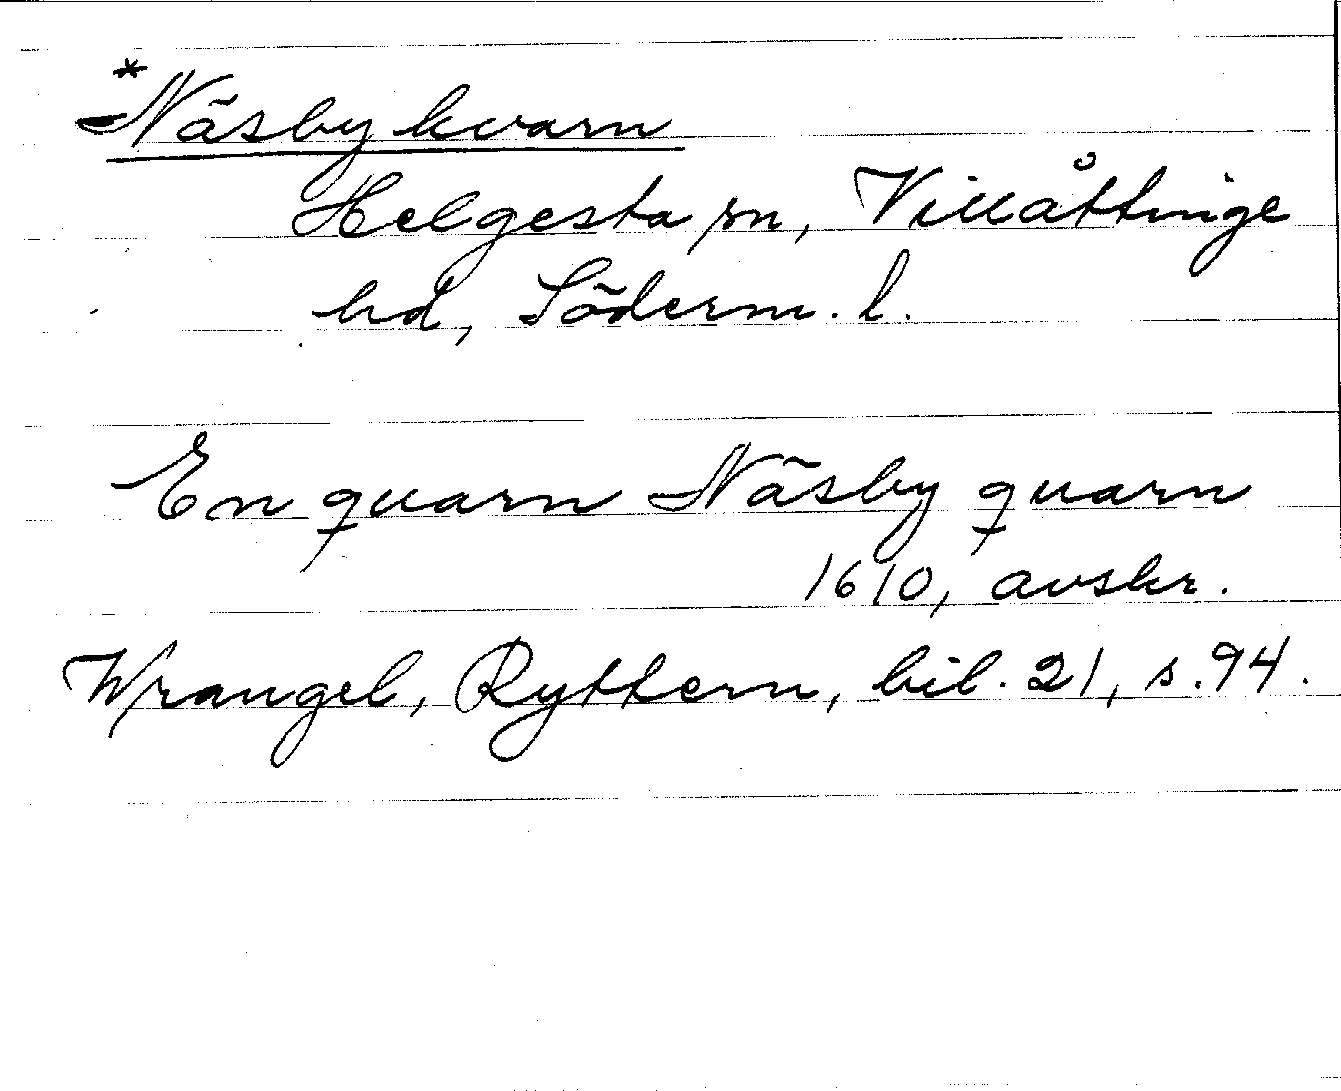 *Näsby kvarn
Helgesta sn, Villåttinge
hd, Söderm. l.
En quarn Näsby quarn
1610, avskr.
Wrangel, Ryttern, bil. 21, s. 94.